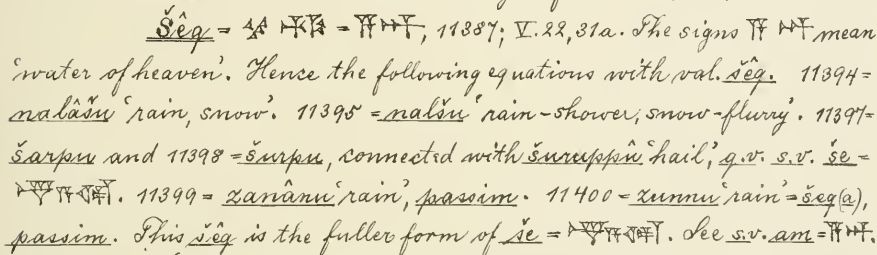 Šêg = 𒀀𒀭, 11387; V. 22, 31a. The signs 𒀀𒀭 mean
'water of heaven'. Hence the following equations with val. šêg. 11394=
nalâšu 'rain, snow'. 11395 = nalšu 'rain-shower, snow-flurry'. 11397=
šarpu and 11398 = šurpu, connected with šuruppû 'hail', q.v. s.v. še=
11399= zanânu 'rain', passim. 11400 = zunnu 'rain' = šeg(a),
passim. This šêg is the fuller form of še = See s.v. am = 𒀀𒀭.